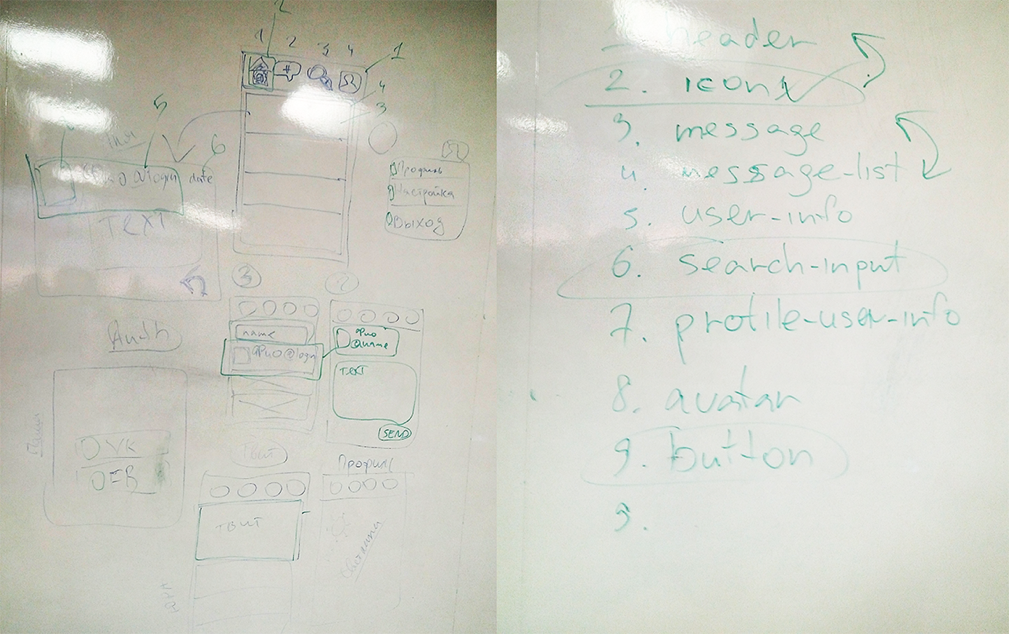 2
1 2 3 4
1
4
3
5
6
@login date
TEXT
Профиль
Настройка
Выход
3
2
Auth
name
ФИО @login
ФИО
@name
TEXT
SEND
VK
FB
Твит
Профиль
ТВИТ
1. header
2. icon
3. message
4. message-list
5. user-info
6. search-input
7. profile-user-info
8. avatar
9. button
9.